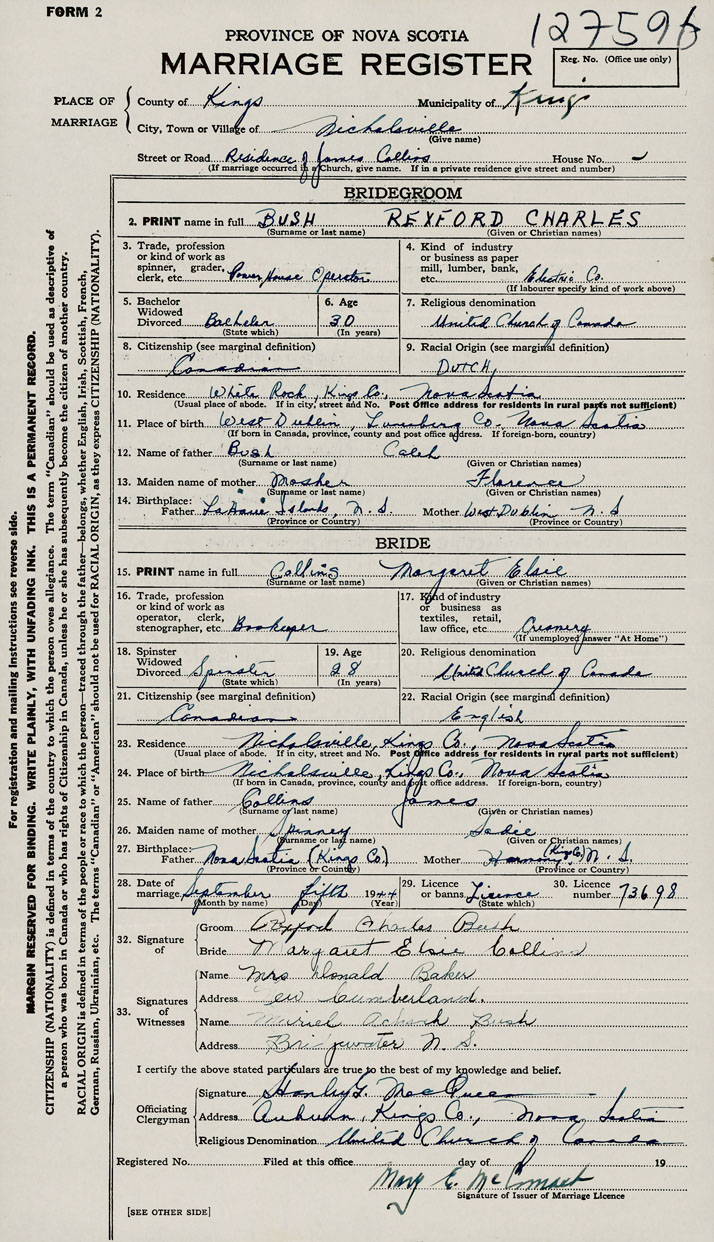 FORM 2
127596
PROVINCE OF NOVA SCOTIA
MARRIAGE REGISTER
Reg. No. (Office use only)
PLACE OF MARRIAGE
County of Kings Municipality of Kings
City, Town or Village of Nicholsville
(Give name)
Street or Road Residence of James Collins House No. -
(If marriage occurred in a Church, give name. If in a private residence give street and number)
BRIDEGROOM
2. PRINT name in full BUSH REXFORD CHARLES
(Surname or last name) (Given or Christian names)
3. Trade, profession or kind of work as spinner, grader, clerk, etc. Power House Operator
4. Kind of industry or business as paper mill, lumber, bank, etc. Electric Co.
(If labourer specify kind of work above)
5. Bachelor Widowed Divorced Bachelor
(State which)
6. Age 30
(In years)
7. Religious denomination
United Church of Canada
8. Citizenship (see marginal definition)
Canadian
9. Racial Origin (see marginal definition)
DUTCH
10. Residence White Rock, Kings Co., Nova Scotia
(Usual place of abode. If in city, street and No. Post Office address for residents in rural parts not sufficient)
11. Place of birth West Dublin, Lunenburg Co. Nova Scotia
(If born in Canada, province, county and post office address. If foreign-born, country)
12. Name of father Bush Caleb
(Surname or last name) (Given or Christian names)
13. Maiden name of mother Mosher Florence
(Surname or last name) (Given or Christian names)
14. Birthplace:
Father LaHave Islands, N.S. Mother West Dublin N.S
(Province or Country) (Province or Country)
BRIDE
15. PRINT name in full Collins Margaret Elsie
(Surname or last name) (Given or Christian names)
16. Trade, profession or kind of work as operator, clerk, stenographer, etc. Bookeeper
17. Kind of industry or business as textiles, retail, law office, etc. Creamery
(If unemployed answer "At Home")
18. Spinster Widowed Divorced Spinster
(State which)
19. Age 28
(In years)
20. Religious denomination
United Church of Canada
21. Citizenship (see marginal definition)
Canadian
22. Racial Origin (see marginal definition)
English
23. Residence Nicholsville, Kings Co., Nova Scotia
(Usual place of abode. If in city, street and No. Post Office address for residents in rural parts not sufficient)
24. Place of birth Nicholsville, Kings Co., Nova Scotia
(If born in Canada, province, county and post office address. If foreign-born, country)
25. Name of father Collins James
(Surname or last name) (Given or Christian names)
26. Maiden name of mother Spinney Sadie
(Surname or last name) (Given or Christian names)
27. Birthplace:
Father Nova Scotia (Kings Co.) Mother Harmony (Kings Co.) N.S.
(Province or Country) (Province or Country)
28. Date of marriage September fifth 1944
(Month by name) (Day) (Year)
29. Licence or banns Licence
(State which)
30. Licence number 73698
32. Signature of
Groom Rexford Charles Bush
Bride Margaret Elsie Collins
33. Signatures of Witnesses
Name Mrs Donald Baker
Address New Cumberland.
Name Muriel Bush
Address Bridgwater N.S.
I certify the above stated particulars are true to the best of my knowledge and belief.
Officiating Clergyman
Signature Hanley G. MacQueen
Address Auburn, Kings Co., Nova Scotia
Religious Denomination United Church of Canada
Registered No. Filed at this office day of 19
Mary E. McCormack
Signature of Issuer of Marriage Licence
[SEE OTHER SIDE]
For registration and mailing instructions see reverse side.
MARGIN RESERVED FOR BINDING. WRITE PLAINLY, WITH UNFADING INK. THIS IS A PERMANENT RECORD.
CITIZENSHIP (NATIONALITY) is defined in terms of the country to which the person owes allegiance. The term "Canadian" should be used as descriptive of
a person who was born in Canada or who has rights of Citizenship in Canada, unless he or she has subsequently become the citizen of another country.
RACIAL ORIGIN is defined in terms of the people or race to which the person—traced through the father—belongs, whether English, Irish, Scottish, French,
German, Russian, Ukrainian, etc. The terms "Canadian" or "American" should not be used for RACIAL ORIGIN, as they express CITIZENSHIP (NATIONALITY).